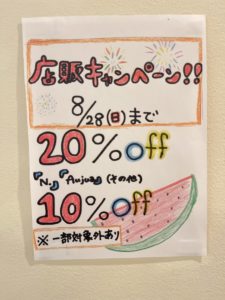 店販キャンペーン!!
8/28(日)まで
20%off
『N.』『Aujua』(その他)
10%off
※一部対象外あり